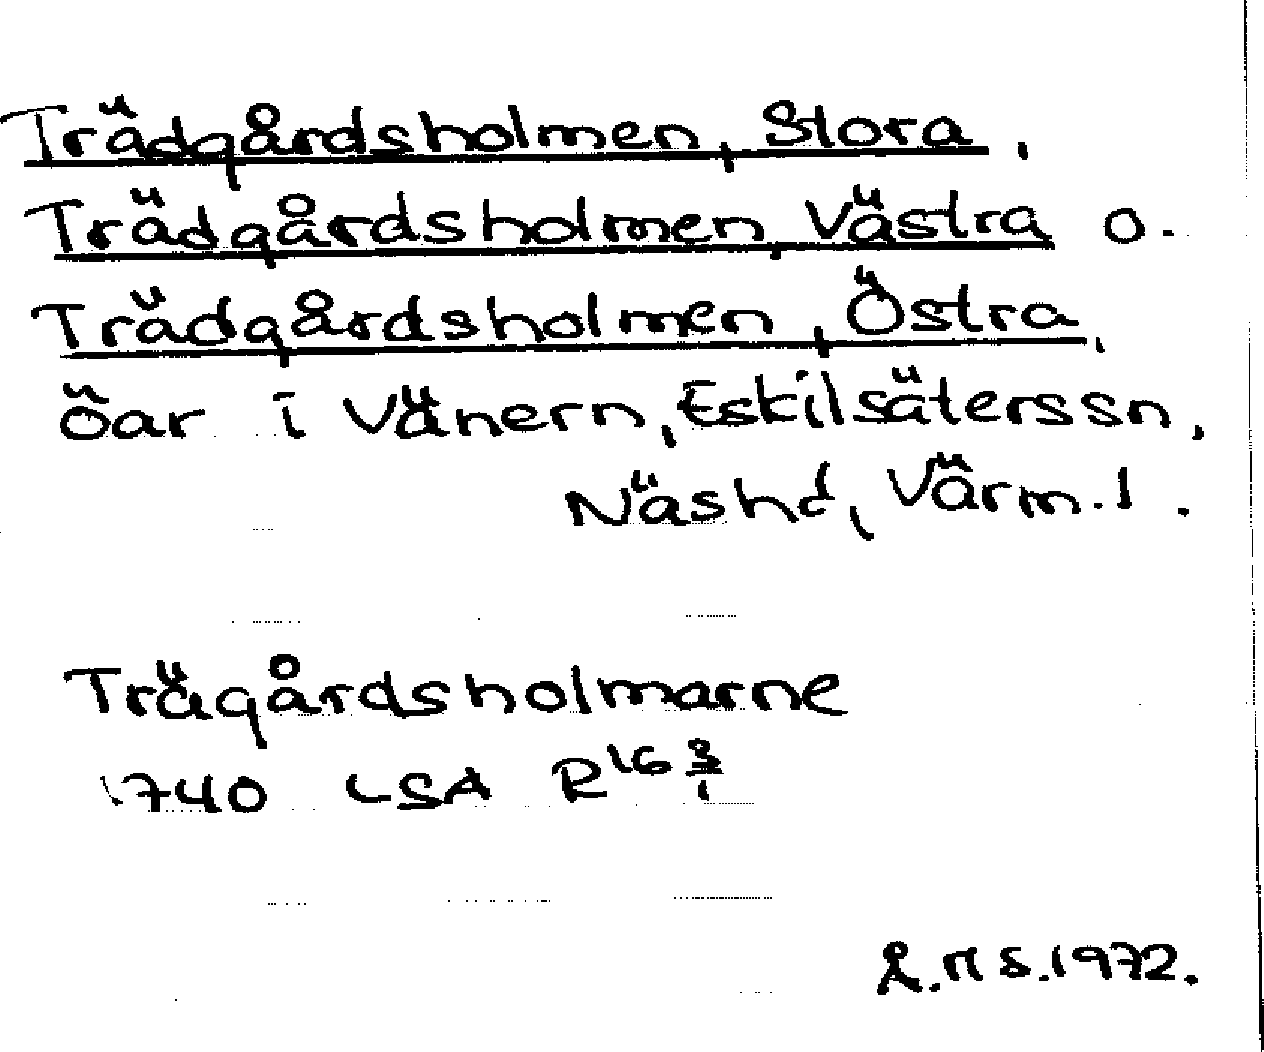 Trädgårdsholmen, Stora,
Trädgårdsholmen, Västra o.
Trädgårdsholmen, Östra,
öar i Vänern, Eskilsäterssn,
Näshd, Värm.l.
Trägårdsholmarne
1740 LSA R16 3/1
Å.M S.1972.